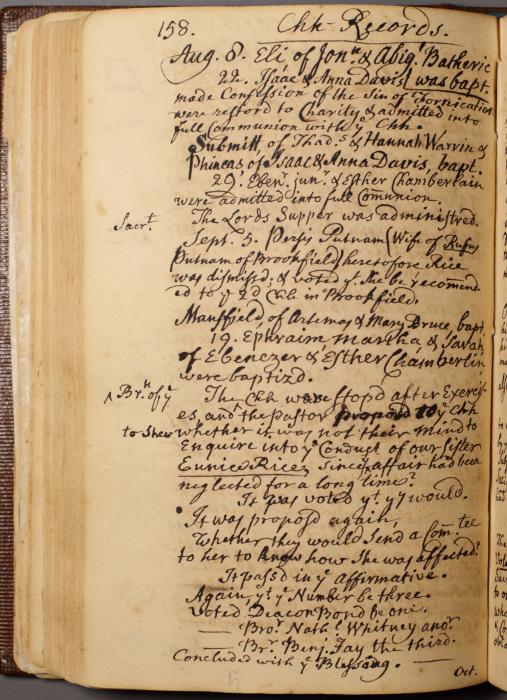 158. Chh Records.
Aug. 8. Eli of Jonn & Abigl Batheric
22. Isaac & Anna Davis was bapt.
made Confession of the Sin of Fornication
were restord to Charity & admitted into
full Communion with ye Chh.
Submitt, of Thads & Hannah Warrin &
Phineas of Isaac & Anna Davis, bapt.
29. Ebenr junr & Esther Chamberlain
were admitted into full Comunion.
Sacrt. The Lords Supper was administred.
Sept. 5. Persis Putnam (Wife of Rufus
Putnam of Brookfield) heretofore Rice
was dismissd; & voted yt She be recomend
ed to ye 2d Chh in Brookfield.
Mansfield, of Artemas & Mary Bruce, bapt.
19. Ephraim Martha & Sarah,
of Ebenezer & Esther Chamberlin,
were baptizd.
^ Brn of ye The Chh were stopd after Exercis-
es, and the pastor propos'd to ye Chh
to Shew whether it was not their mind to
Enquire into ye Conduct of our Sister
Eunice Rice, Since affair had been
neglected for a long time?
It was voted yt yy would.
It was proposd again,
Whether they would Send a Com:tee
to her to know how She was affected?
It pass'd in ye affirmative.
Again, yt ye Number be three.
Voted Deacon Bond be one.
— Bror Nathl Whitney anor.
— Br. Benj. Fay the third.
Concluded with ye Blessing. —
Oct.